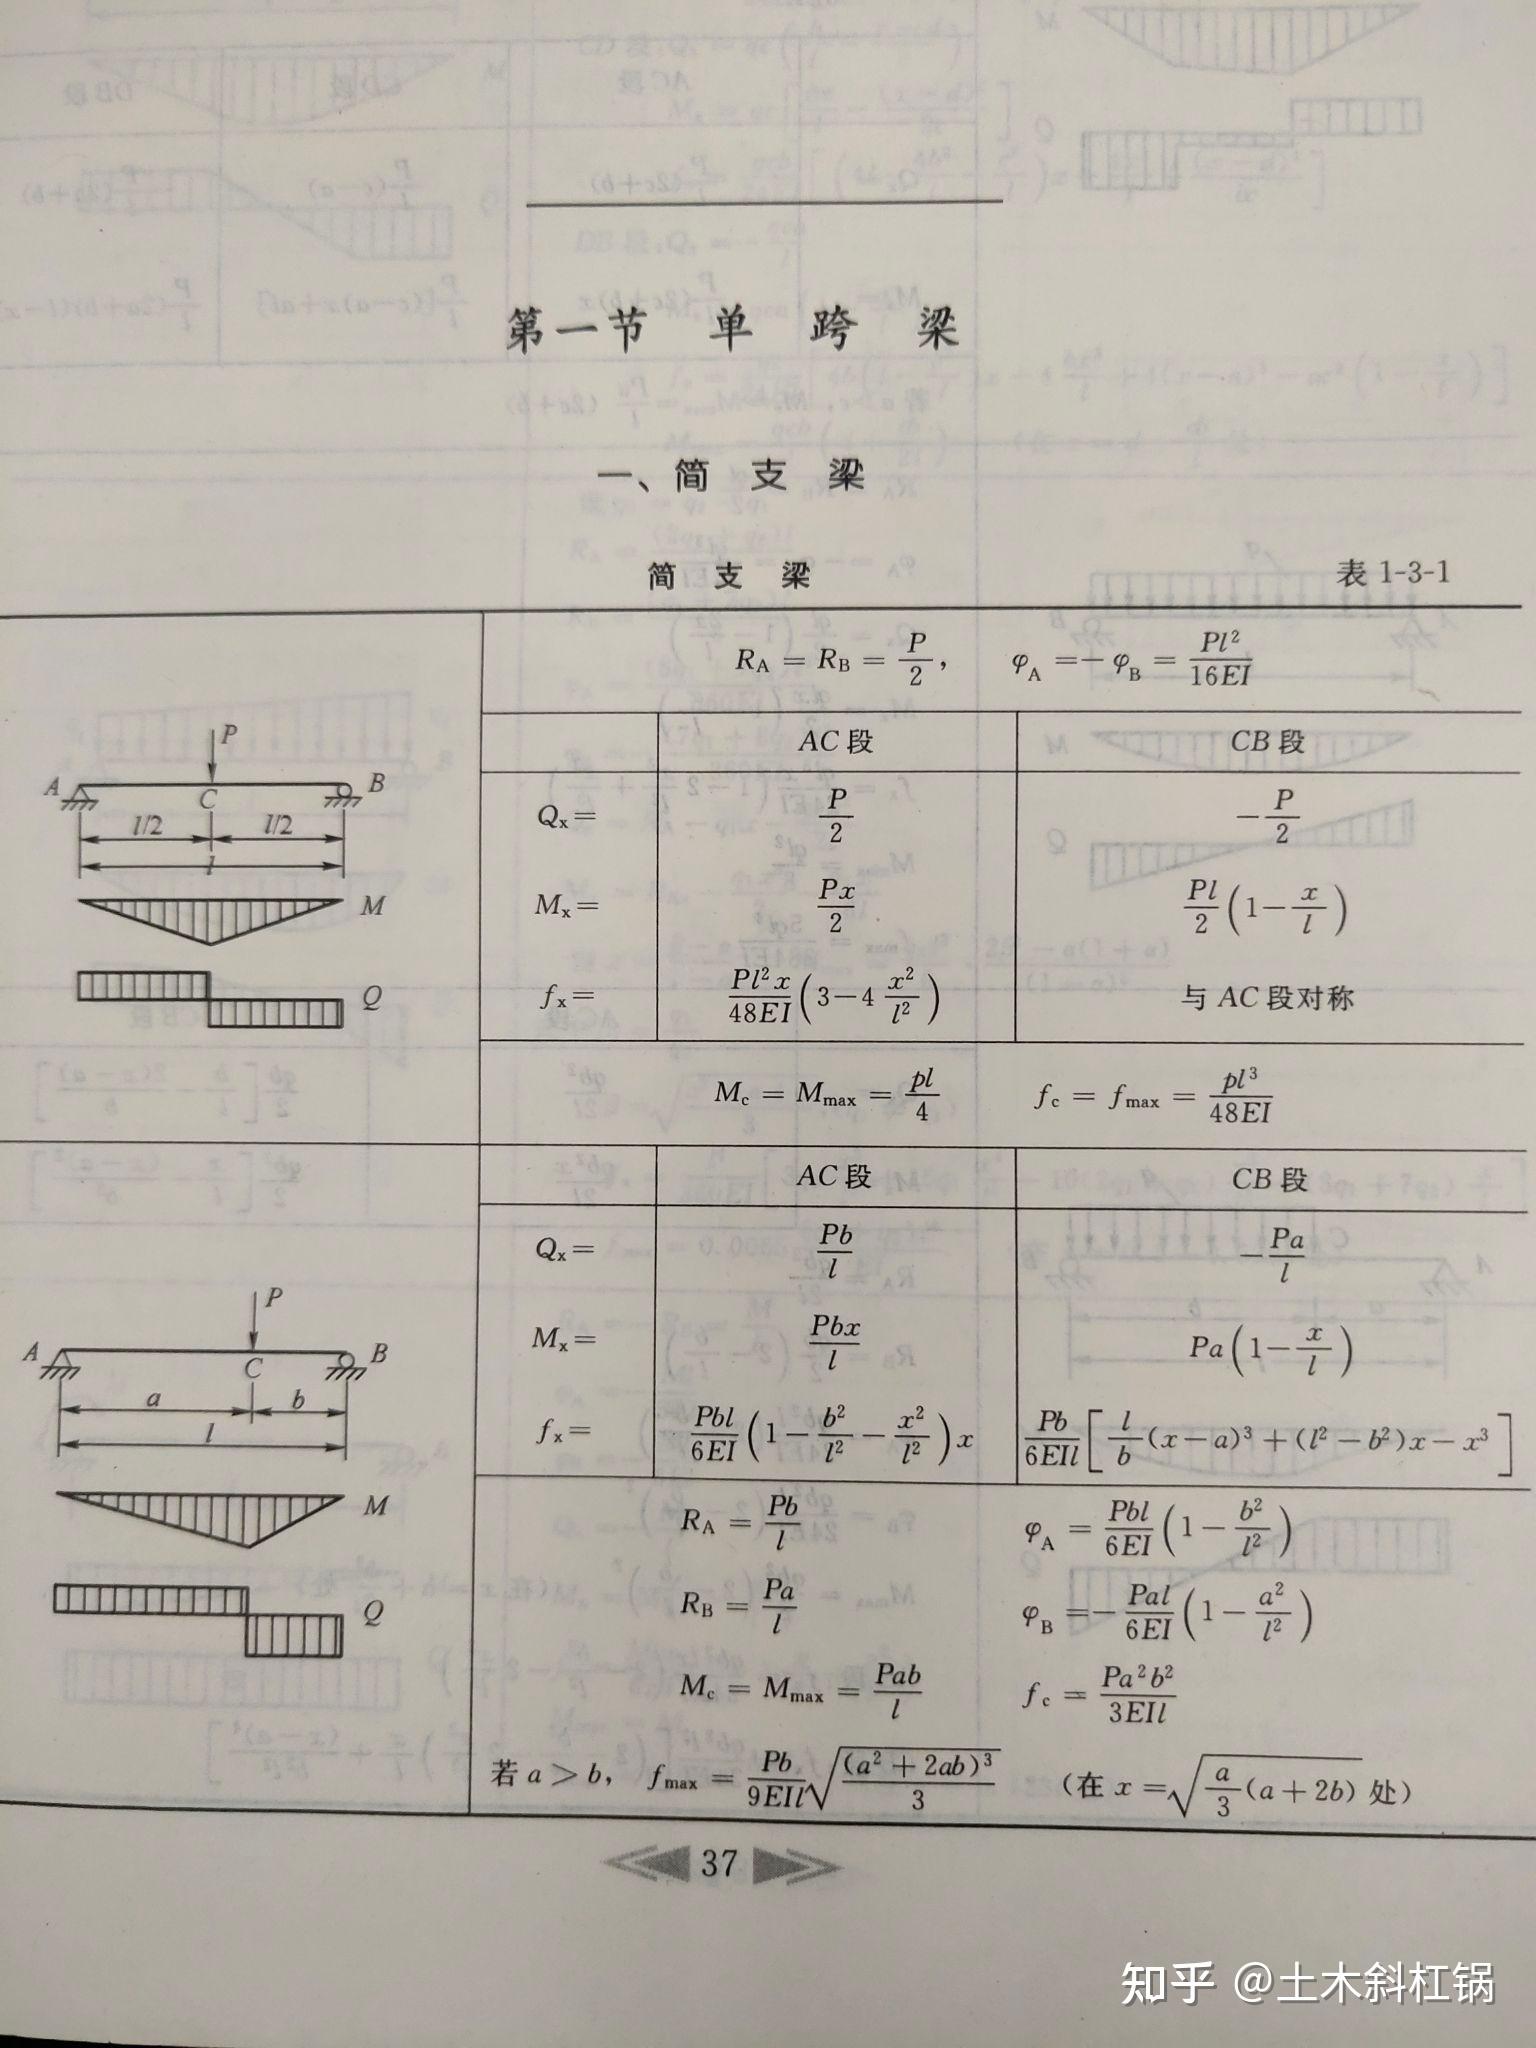 第一节 单 跨 梁
一、简 支 梁
简 支 梁 表 1-3-1
R_A = R_B = P/2, φ_A = -φ_B = Pl²/16EI
AC 段 CB 段
P
A C B
l/2 l/2
l
M
Q
Q_x = P/2 -P/2
M_x = Px/2 Pl/2(1-x/l)
f_x = Pl²x/48EI(3-4 x²/l²) 与 AC 段对称
M_c = M_max = pl/4 f_c = f_max = pl³/48EI
AC 段 CB 段
P
A C B
a b
l
M
Q
Q_x = Pb/l -Pa/l
M_x = Pbx/l Pa(1-x/l)
f_x = Pbl/6EI(1-b²/l²-x²/l²)x Pb/6EIl[l/b(x-a)³+(l²-b²)x-x³]
R_A = Pb/l φ_A = Pbl/6EI(1-b²/l²)
R_B = Pa/l φ_B = -Pal/6EI(1-a²/l²)
M_c = M_max = Pab/l f_c = Pa²b²/3EIl
若 a > b, f_max = Pb/9EIl√((a²+2ab)³/3) (在 x = √(a/3(a+2b)) 处)
37
知乎 @土木斜杠锅